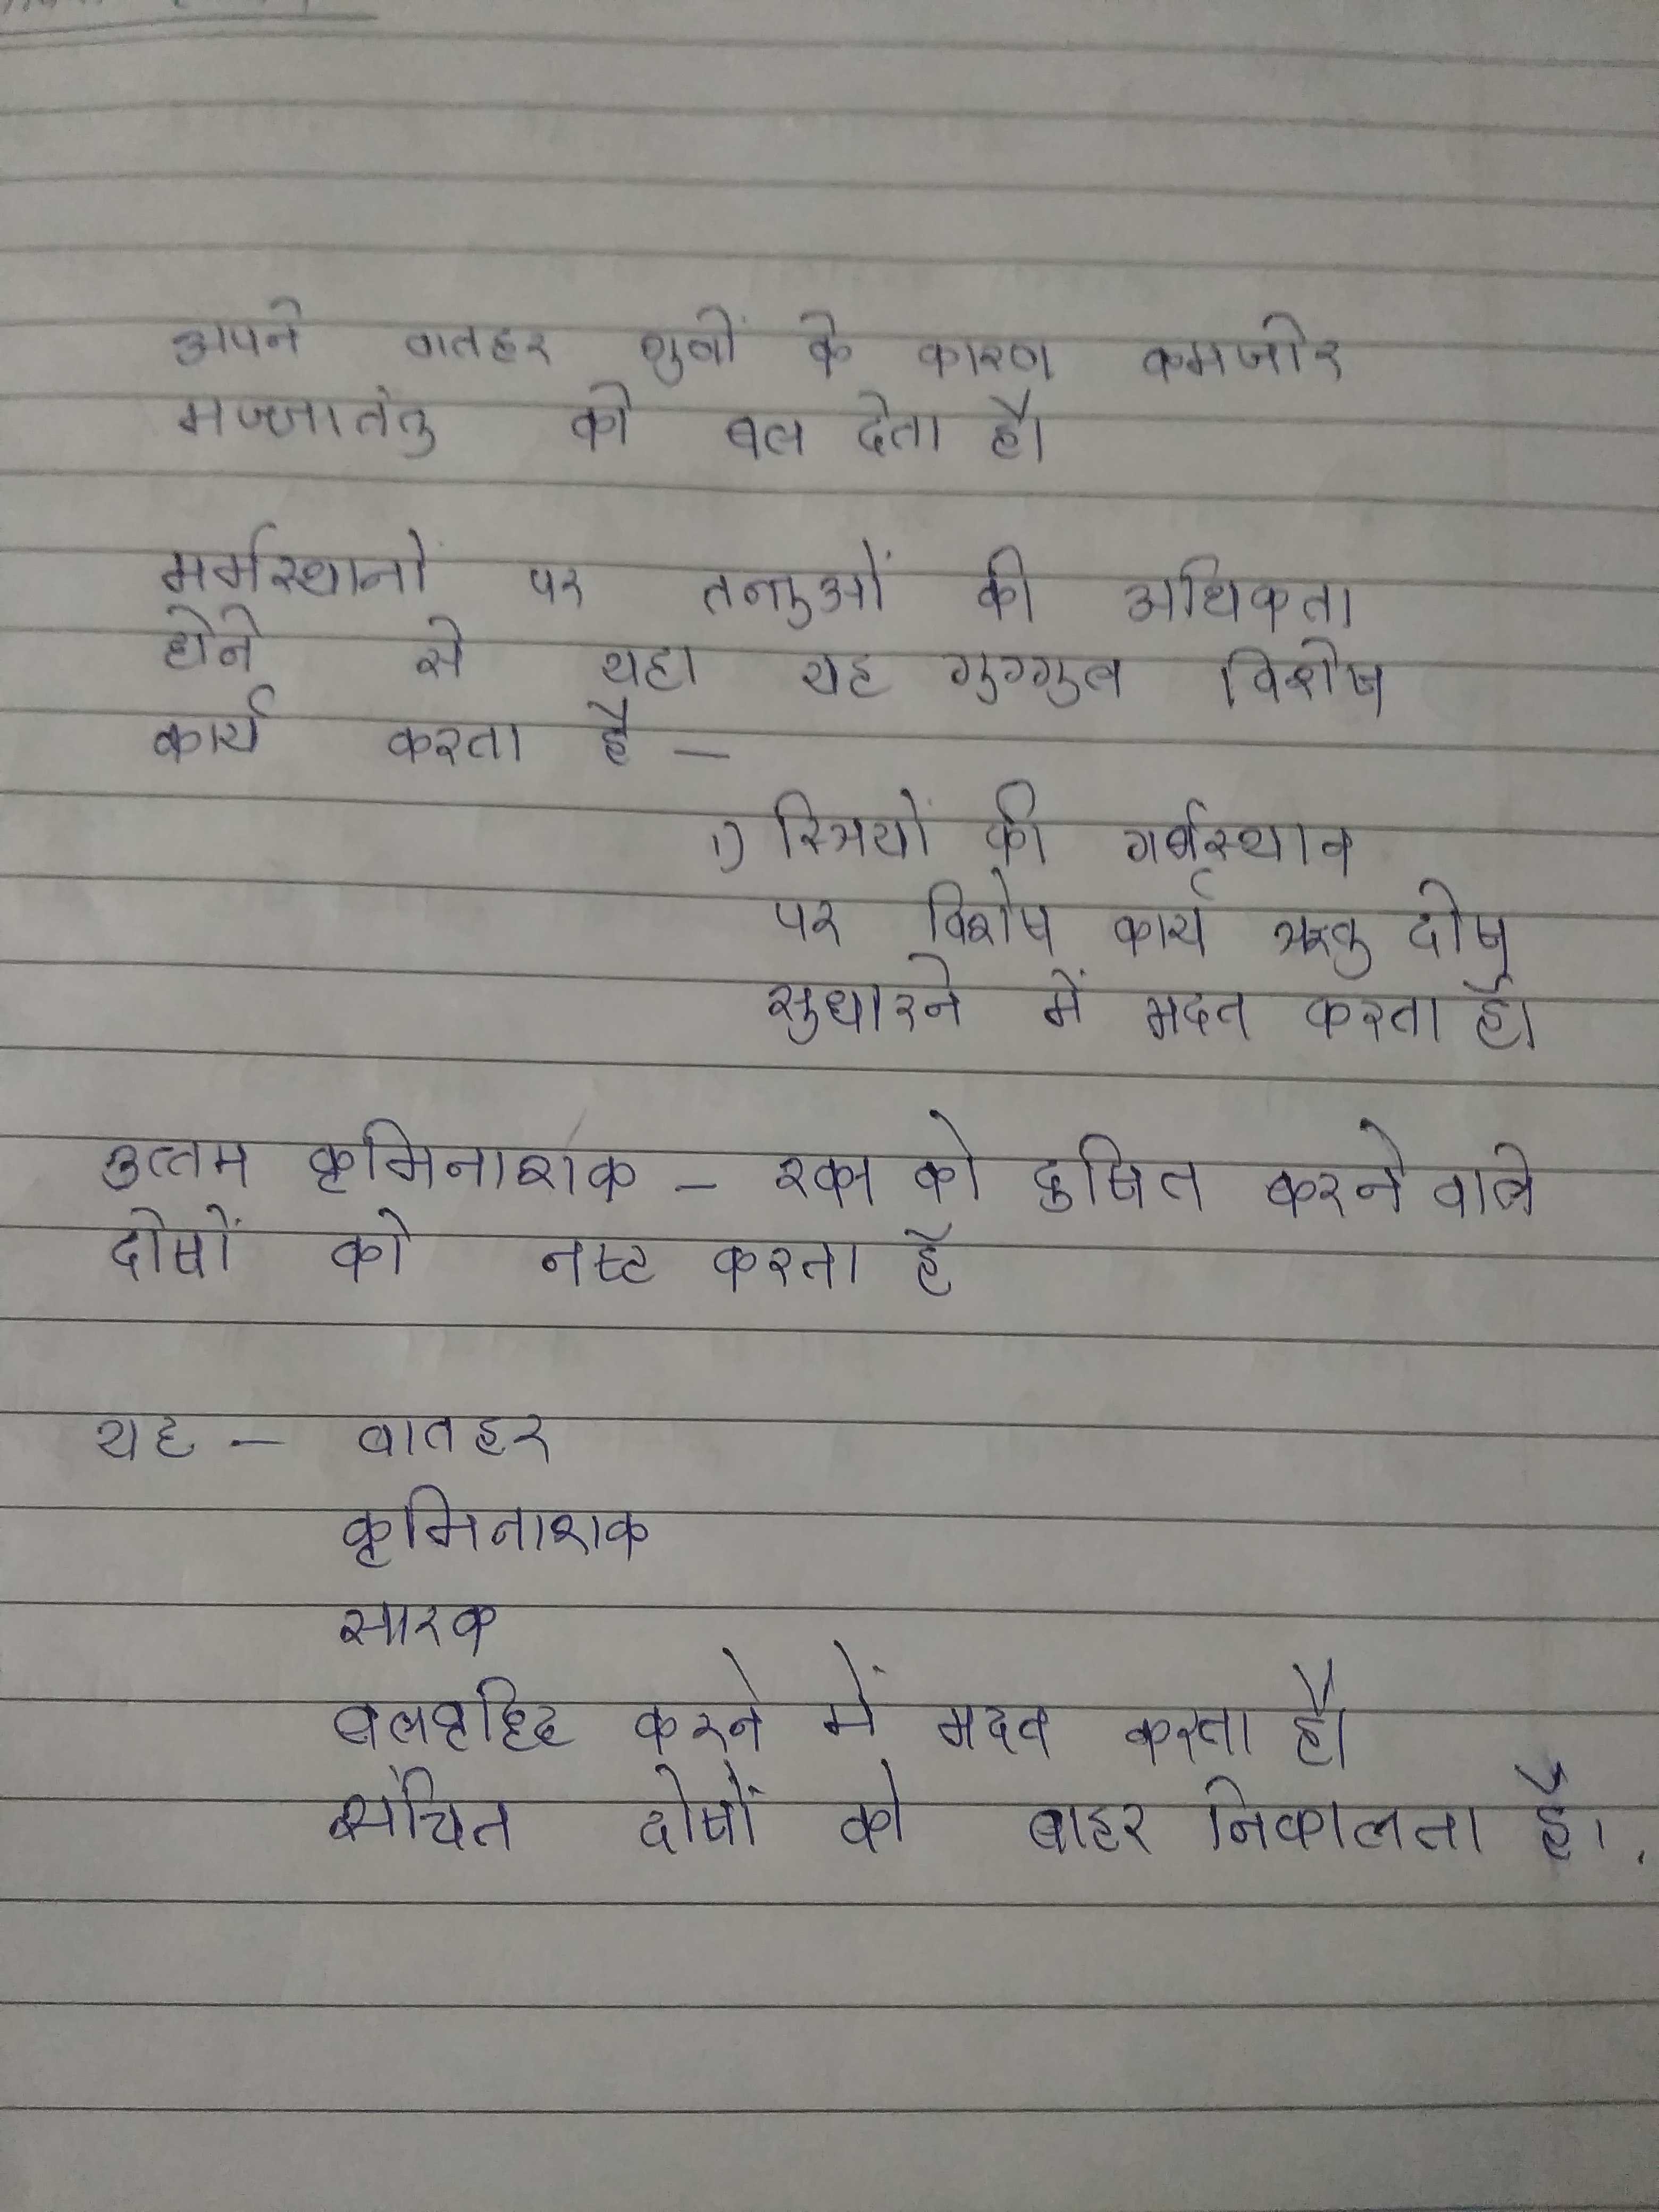 अपने वातहर गुणों के कारण कमजोर
मज्जातंतु को बल देता है।
मर्मस्थानों पर तन्तुओं की अधिकता
होने से यहा यह गुग्गुल विशेष
कार्य करता है –
1) स्त्रियों की गर्भस्थान
पर विशेष कार्य ऋतु दोष
सुधारने में मदत करता है।
उत्तम कृमिनाशक – रक्त को दुषित करने वाले
दोषों को नष्ट करता है
यह – वातहर
कृमिनाशक
सारक
बलवृद्धि करने में मदत करता है।
संचित दोषों को बाहर निकालता है।.